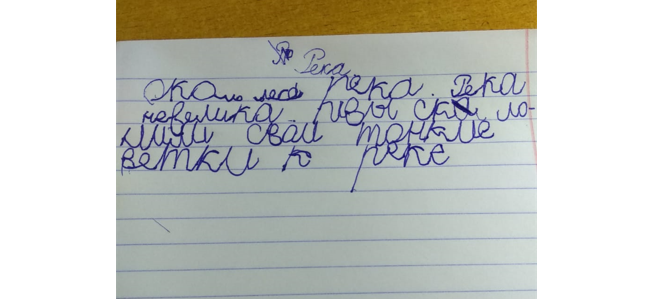 Река
Около леса река. Река
невелика. Ивы скло-
мими сваи тонкие
ветки к реке